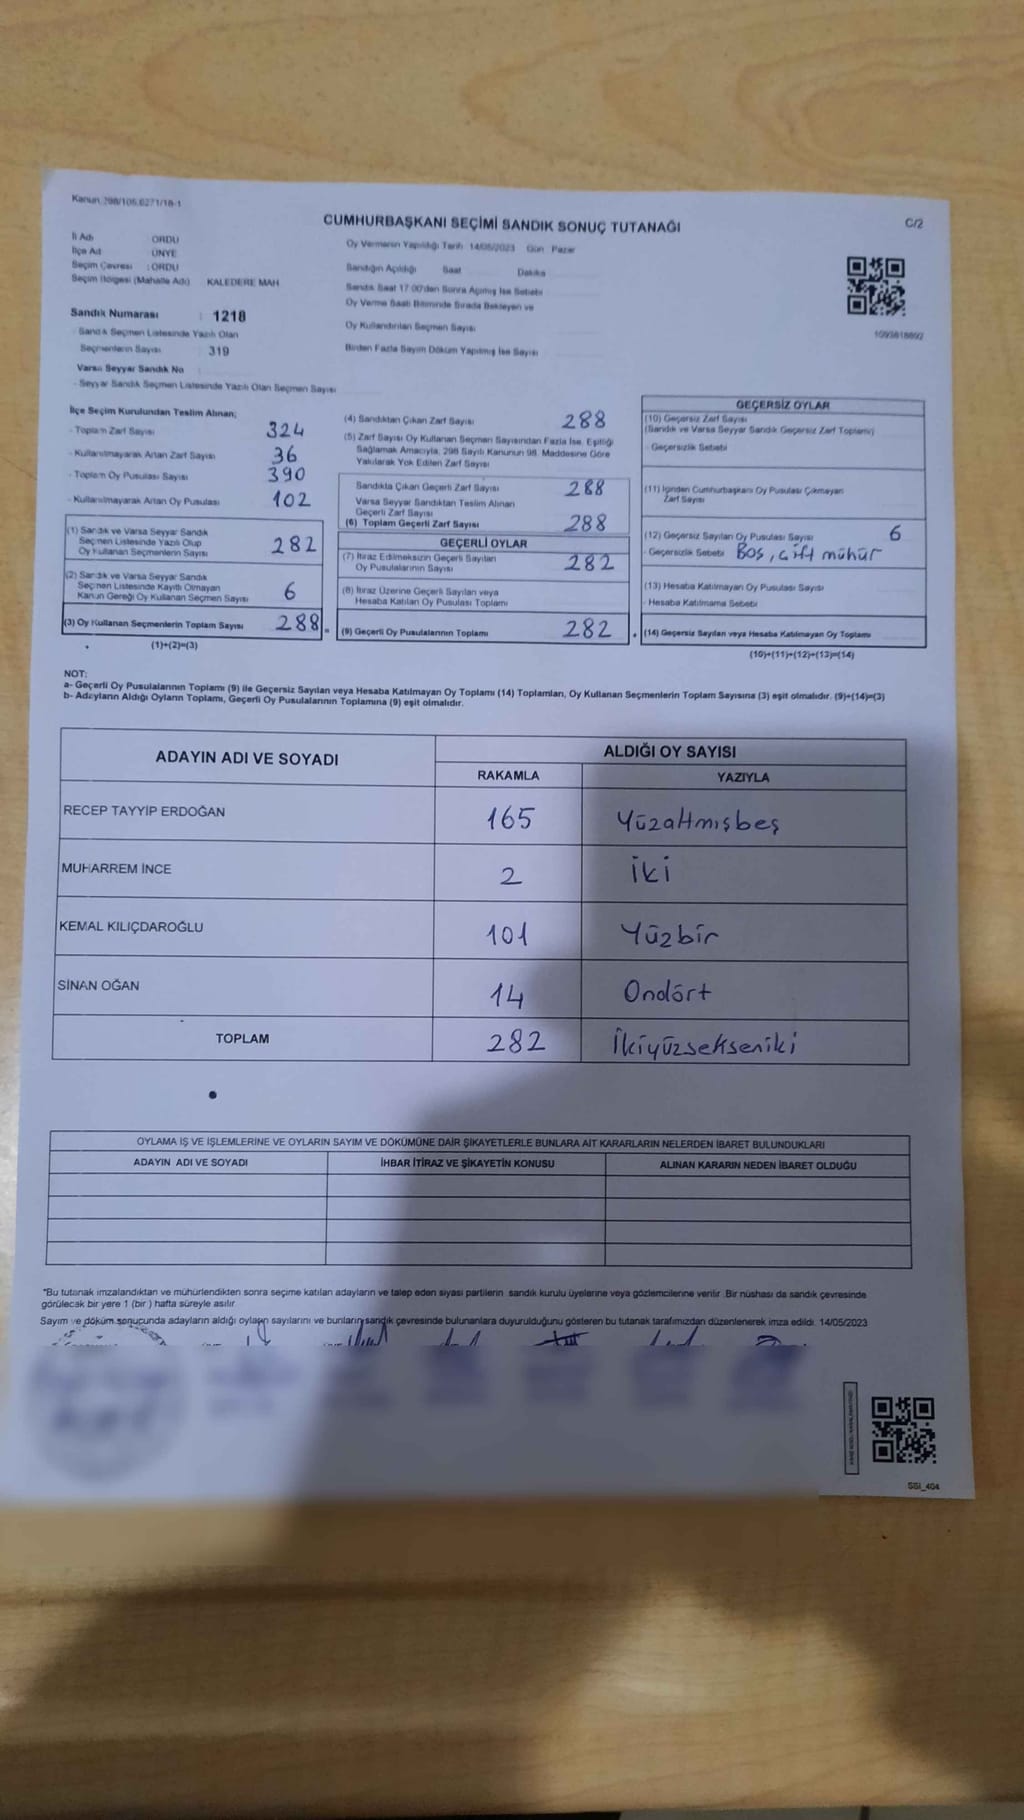 Kanun 298/105,6271/18-1
CUMHURBAŞKANI SEÇİMİ SANDIK SONUÇ TUTANAĞI
C/2
İl Adı ORDU
İlçe Adı ÜNYE
Seçim Çevresi : ORDU
Seçim Bölgesi (Mahalle Adı) KALEDERE MAH
Sandık Numarası : 1218
Sandık Seçmen Listesinde Yazılı Olan
Seçmenlerin Sayısı 319
Varsa Seyyar Sandık No
- Seyyar Sandık Seçmen Listesinde Yazılı Olan Seçmen Sayısı
Oy Vermenin Yapıldığı Tarih 14/05/2023 Gün Pazar
Sandığın Açıldığı Saat Dakika
Sandık Saat 17.00'den Sonra Açılmış İse Sebebi
Oy Verme Saati Bitiminde Sırada Bekleyen ve
Oy Kullandırılan Seçmen Sayısı
Birden Fazla Sayım Döküm Yapılmış İse Sayısı
1093818892
İlçe Seçim Kurulundan Teslim Alınan;
- Toplam Zarf Sayısı 324
- Kullanılmayarak Artan Zarf Sayısı 36
- Toplam Oy Pusulası Sayısı 390
- Kullanılmayarak Artan Oy Pusulası 102
(1) Sandık ve Varsa Seyyar Sandık
Seçmen Listesinde Yazılı Olup
Oy Kullanan Seçmenlerin Sayısı 282
(2) Sandık ve Varsa Seyyar Sandık
Seçmen Listesinde Kayıtlı Olmayan
Kanun Gereği Oy Kullanan Seçmen Sayısı 6
(3) Oy Kullanan Seçmenlerin Toplam Sayısı 288
(1)+(2)=(3)
(4) Sandıktan Çıkan Zarf Sayısı 288
(5) Zarf Sayısı Oy Kullanan Seçmen Sayısından Fazla İse, Eşitliği
Sağlamak Amacıyla, 298 Sayılı Kanunun 98. Maddesine Göre
Yakılarak Yok Edilen Zarf Sayısı
Sandıkta Çıkan Geçerli Zarf Sayısı 288
Varsa Seyyar Sandıktan Teslim Alınan
Geçerli Zarf Sayısı
(6) Toplam Geçerli Zarf Sayısı 288
GEÇERLİ OYLAR
(7) İtiraz Edilmeksizin Geçerli Sayılan
Oy Pusulalarının Sayısı 282
(8) İtiraz Üzerine Geçerli Sayılan veya
Hesaba Katılan Oy Pusulası Toplamı
(9) Geçerli Oy Pusulalarının Toplamı 282
GEÇERSİZ OYLAR
(10) Geçersiz Zarf Sayısı
(Sandık ve Varsa Seyyar Sandık Geçersiz Zarf Toplamı)
- Geçersizlik Sebebi
(11) İçinden Cumhurbaşkanı Oy Pusulası Çıkmayan
Zarf Sayısı
(12) Geçersiz Sayılan Oy Pusulası Sayısı 6
- Geçersizlik Sebebi Boş, Çift mühür
(13) Hesaba Katılmayan Oy Pusulası Sayısı
- Hesaba Katılmama Sebebi
(14) Geçersiz Sayılan veya Hesaba Katılmayan Oy Toplamı
(10)+(11)+(12)+(13)=(14)
NOT:
a- Geçerli Oy Pusulalarının Toplamı (9) ile Geçersiz Sayılan veya Hesaba Katılmayan Oy Toplamı (14) Toplamları, Oy Kullanan Seçmenlerin Toplam Sayısına (3) eşit olmalıdır. (9)+(14)=(3)
b- Adayların Aldığı Oyların Toplamı, Geçerli Oy Pusulalarının Toplamına (9) eşit olmalıdır.
ADAYIN ADI VE SOYADI ALDIĞI OY SAYISI
RAKAMLA YAZIYLA
RECEP TAYYİP ERDOĞAN 165 Yüzaltmışbeş
MUHARREM İNCE 2 İki
KEMAL KILIÇDAROĞLU 101 Yüzbir
SİNAN OĞAN 14 Ondört
TOPLAM 282 İkiyüzsekseniki
OYLAMA İŞ VE İŞLEMLERİNE VE OYLARIN SAYIM VE DÖKÜMÜNE DAİR ŞİKAYETLERLE BUNLARA AİT KARARLARIN NELERDEN İBARET BULUNDUKLARI
ADAYIN ADI VE SOYADI İHBAR İTİRAZ VE ŞİKAYETİN KONUSU ALINAN KARARIN NEDEN İBARET OLDUĞU
*Bu tutanak imzalandıktan ve mühürlendikten sonra seçime katılan adayların ve talep eden siyasi partilerin sandık kurulu üyelerine veya gözlemcilerine verilir. Bir nüshası da sandık çevresinde
görülecek bir yere 1 (bir ) hafta süreyle asılır.
Sayım ve döküm sonucunda adayların aldığı oyların sayılarını ve bunların sandık çevresinde bulunanlara duyurulduğunu gösteren bu tutanak tarafımızdan düzenlenerek imza edildi. 14/05/2023
SSI_404